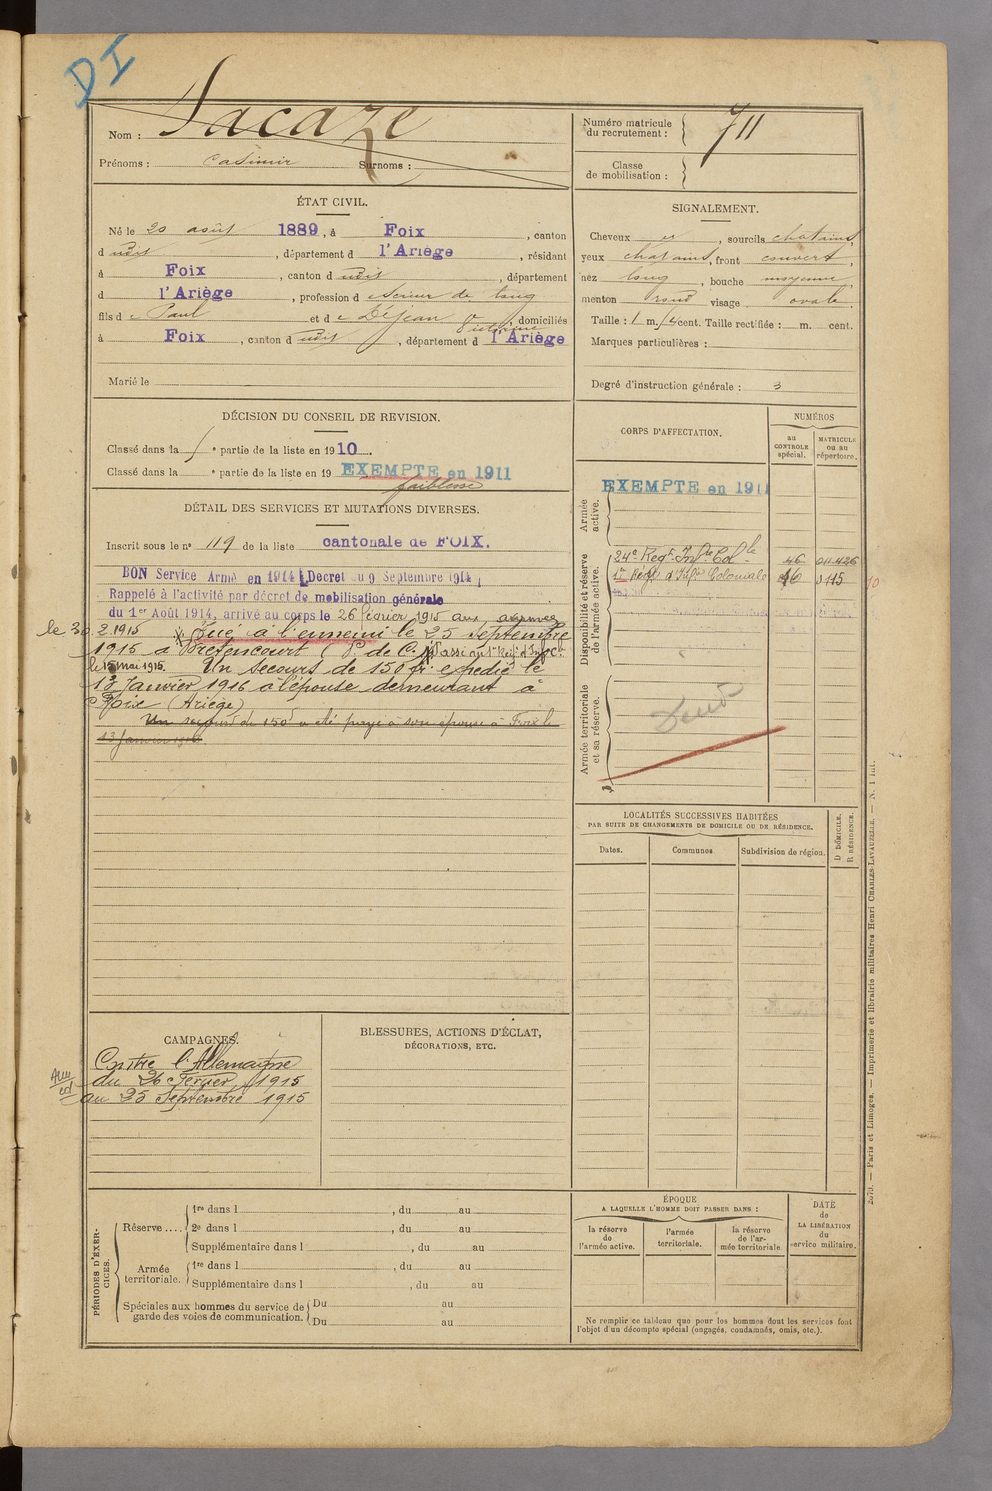 DI
Nom : Lacaze
Prénoms : Casimir Surnoms :
Numéro matricule du recrutement : 711
Classe de mobilisation :
ÉTAT CIVIL.
Né le 20 août 1889, à Foix, canton
d udit, département d l'Ariège, résidant
à Foix, canton d udit, département
d l'Ariège, profession d e scieur de long
fils d e Paul et d e Dejean Victorine, domiciliés
à Foix, canton d udit, département d l'Ariège
Marié le
SIGNALEMENT.
Cheveux et, sourcils chatains,
yeux chatains, front couvert,
nez long, bouche moyenne,
menton rond visage ovale.
Taille : 1 m. cent. Taille rectifiée : m. cent.
Marques particulières :
Degré d'instruction générale : 3
DÉCISION DU CONSEIL DE REVISION.
Classé dans la 1e partie de la liste en 1910.
Classé dans la e partie de la liste en 19 EXEMPTE en 1911
faiblesse
DÉTAIL DES SERVICES ET MUTATIONS DIVERSES.
Inscrit sous le n° 119 de la liste cantonale de FOIX.
BON Service Armé en 1914 (Decret du 9 Septembre 1914)
Rappelé à l'activité par décret de mobilisation générale
du 1er Août 1914, arrivé au corps le 26 février 1915
2.1915 Tué à l'ennemi le 25 Septembre
1915 à (P. de C.) Passé au 1er Regt d'Inf. Cle
le 15 mai 1915. Un secours de 150 fr. expedié le
13 Janvier 1916 à l'épouse demeurant à
Foix (Ariège)
Un secours de 150f a été payé à son épouse à Foix le
13 Janvier 1916.
CORPS D'AFFECTATION.
NUMÉROS
au CONTROLE spécial.
MATRICULE ou au répertoire.
Armée active.
EXEMPTE en 1911
Disponibilité et réserve de l'armée active.
24e Regt. Infrie Colle 46 011.426
1er Regt d'Infie Coloniale 46 3115
10
Armée territoriale et sa réserve.
LOCALITÉS SUCCESSIVES HABITÉES
PAR SUITE DE CHANGEMENTS DE DOMICILE OU DE RÉSIDENCE.
Dates. Communes. Subdivision de région. D DOMICILE. R RÉSIDENCE.
CAMPAGNES.
Contre l'Allemagne
du 26 Fevrier 1915
au 25 Septembre 1915
BLESSURES, ACTIONS D'ÉCLAT,
DÉCORATIONS, ETC.
PÉRIODES D'EXERCICES.
Réserve .... 1re dans l , du au
2e dans l , du au
Supplémentaire dans l , du au
Armée territoriale. 1re dans l , du au
Supplémentaire dans l , du au
Spéciales aux hommes du service de garde des voies de communication. Du au
Du au
ÉPOQUE
A LAQUELLE L'HOMME DOIT PASSER DANS :
la réserve de l'armée active.
l'armée territoriale.
la réserve de l'armée territoriale
DATE de LA LIBÉRATION du service militaire.
Ne remplir ce tableau que pour les hommes dont les services font
l'objet d'un décompte spécial (engagés, condamnés, omis, etc.).
Paris et Limoges. — Imprimerie et librairie militaires Henri CHARLES-LAVAUZELLE.